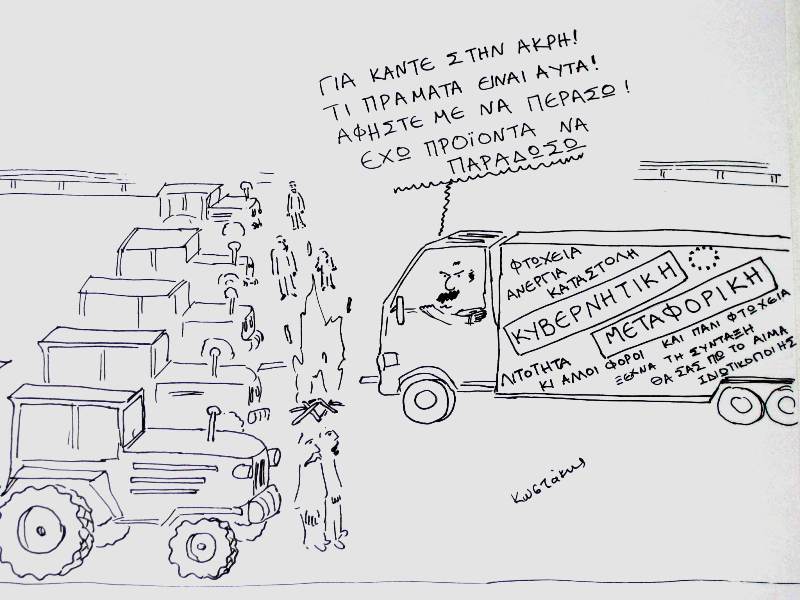 ΓΙΑ ΚΑΝΤΕ ΣΤΗΝ ΑΚΡΗ!
ΤΙ ΠΡΑΜΑΤΑ ΕΙΝΑΙ ΑΥΤΑ!
ΑΦΗΣΤΕ ΜΕ ΝΑ ΠΕΡΑΣΩ!
ΕΧΩ ΠΡΟΪΟΝΤΑ ΝΑ
ΠΑΡΑΔΩΣΩ
ΦΤΩΧΕΙΑ
ΑΝΕΡΓΙΑ
ΚΑΤΑΣΤΟΛΗ
ΚΥΒΕΡΝΗΤΙΚΗ
ΜΕΤΑΦΟΡΙΚΗ
ΛΙΤΟΤΗΤΑ
ΚΙ ΑΛΛΟΙ ΦΟΡΟΙ ΚΑΙ ΠΑΛΙ ΦΤΩΧΕΙΑ
ΞΕΧΝΑ ΤΗ ΣΥΝΤΑΞΗ
ΘΑ ΣΑΣ ΠΙΩ ΤΟ ΑΙΜΑ
ΙΔΙΩΤΙΚΟΠΟΙΗΣ
Κωστάκης